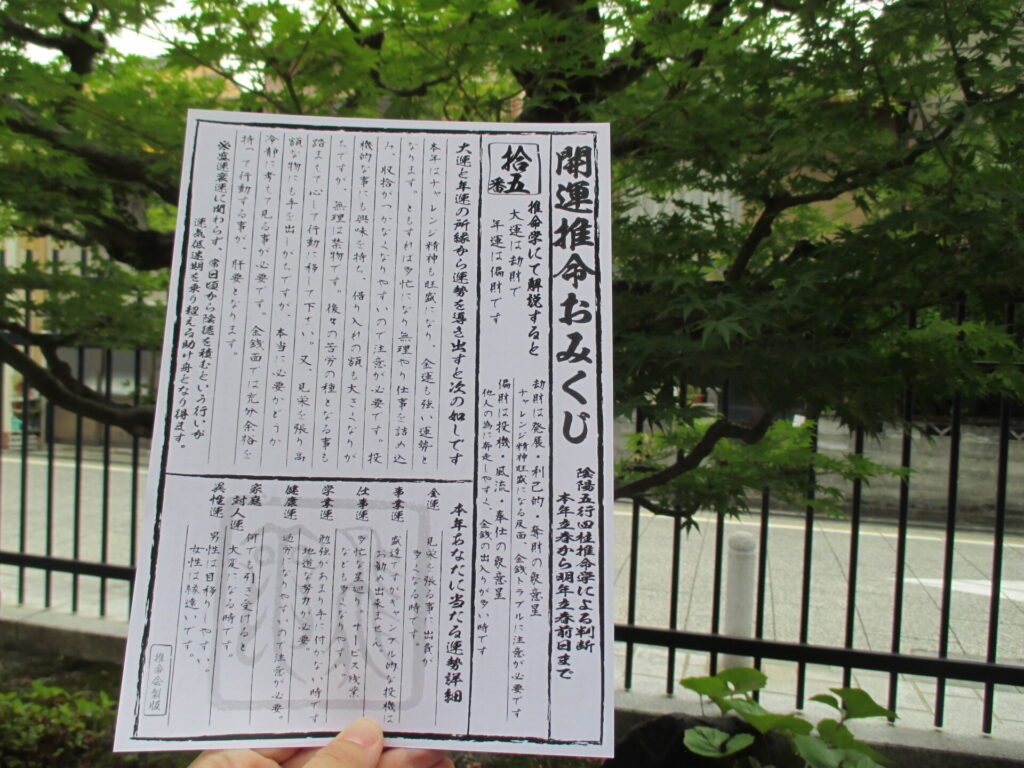 開運推命おみくじ
陰陽五行四柱推命学による判断
本年立春から明年立春前日まで
拾五番
推命学にて解説すると
大運は劫財で
年運は偏財です
劫財は発展・利己的・奪財の象意星
チャレンジ精神旺盛になる反面、金銭トラブルに注意が必要です
偏財は投機・風流・奉仕の象意星
他人の為に奔走しやすく、金銭の出入りが多い時です
大運と年運の所縁から運勢を導き出すと次の如しです
本年はチャレンジ精神も旺盛になり、金運も強い運勢と
なります。ともすれば多忙になり無理やり仕事を詰め込
み、収拾がつかなくなりやすいので注意が必要です。投
機的な事にも興味を持ち、借り入れの額も大きくなりが
ちですが、無理は禁物です。後々の苦労の種となる事も
踏まえて心して行動に移して下さい。又、見栄を張り高
額な物にも手を出しがちですが、本当に必要かどうか
冷静に考えて見る事が必要です。金銭面では充分余裕を
持って行動する事が、肝要となります。
※盛運衰運に関わらず、常日頃から陰徳を積むという行いが
運気低迷期を乗り越える助け舟となり得ます。
本年あなたに当たる運勢詳細
金運 見栄を張る事に出費が
多くなる時です。
事業運 盛運ですがギャンブル的な投機は
お勧め出来ません。
仕事運 多忙な星廻り。サービス残業
なども多くなりやすい。
学業運 勉強があまり手に付かない時です
地道な努力が必要。
健康運 過労になりやすいので注意が必要。
家庭 何でも引き受けると
対人運 大変になる時です。
異性運 男性は目移りしやすい。
女性は縁遠いです。
推命会製版